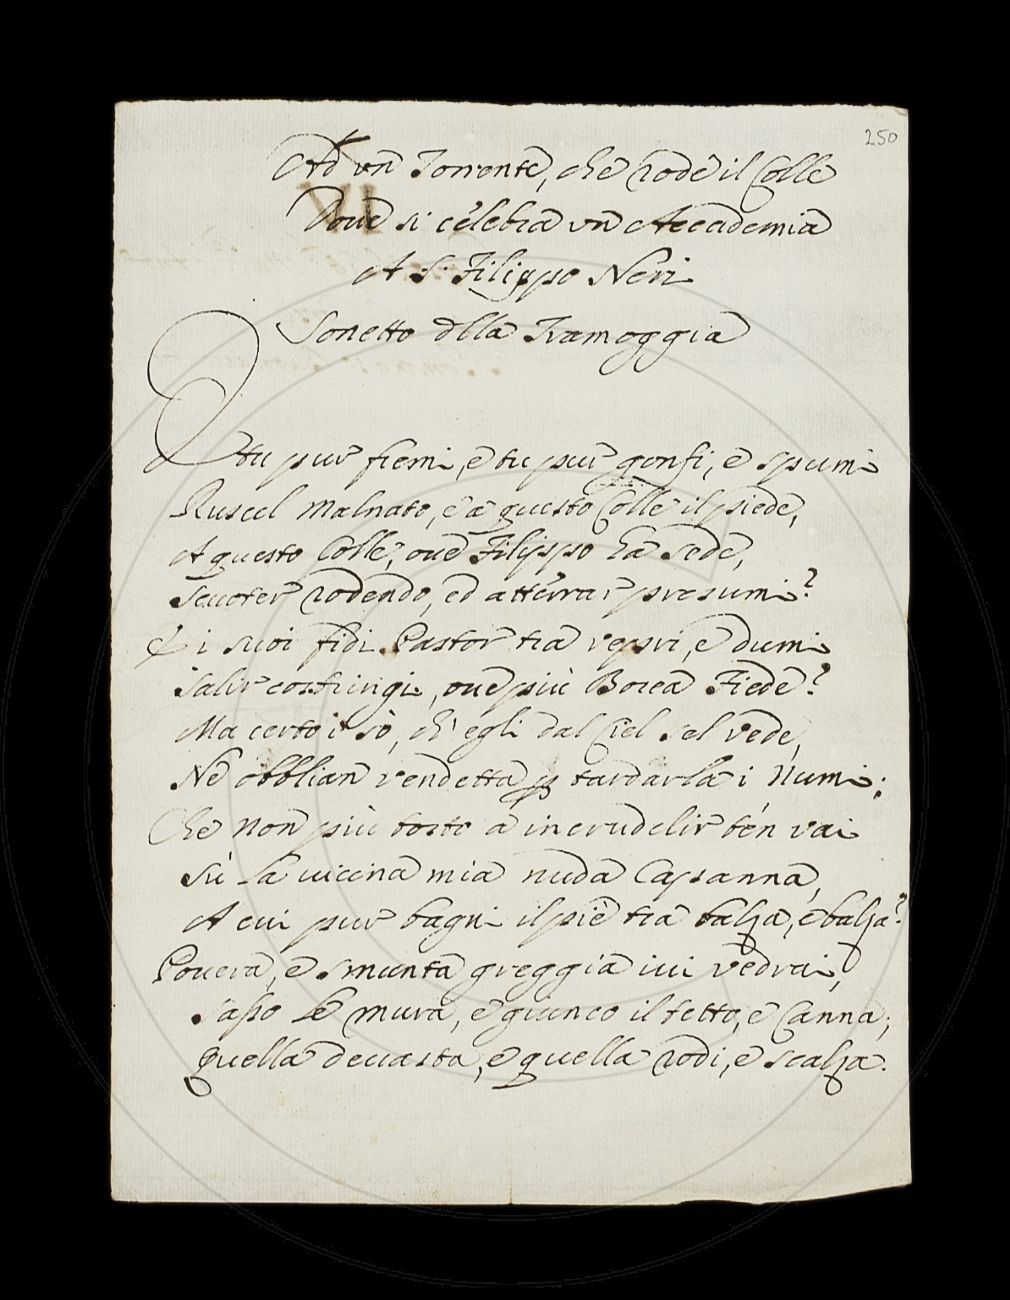 250
Ad vn Torrente, che rode il Colle
Doue si celebra vn Accademia
A S. Filippo Neri
Sonetto dlla Tramoggia
E tu pur fremi, e tu pur gonfi, e spumi
Ruscel malnato, e à questo Colle il piede,
A questo Colle, oue Filippo hà sede,
Scuoter rodendo, ed atterrar presumi?
E i suoi fidi Pastor trà vepri, e dumi
Salir costringi, oue più Borea Fiede?
Ma certo i' sò, ch' egli dal Ciel sel vede,
Nè obblian vendetta p tardarla i Numi:
Che non più tosto à incrudelir ten vai
Sù la uicina mia nuda Capanna,
A cui pur bagni il piè trà balza, e balza?
Pouera, e smunta greggia iui vedrai,
Sasso le mura, e giunco il tetto, e Canna;
Quella deuasta, e quella rodi, e scalza.